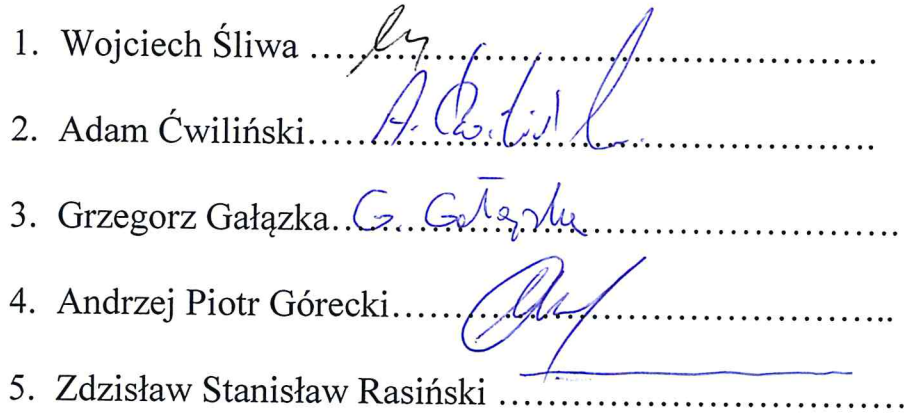 1. Wojciech Śliwa ..........................................
2. Adam Ćwiliński.....A. Ćwiliński.....................
3. Grzegorz Gałązka..G. Gałązka.........................
4. Andrzej Piotr Górecki....................................
5. Zdzisław Stanisław Rasiński ..............................